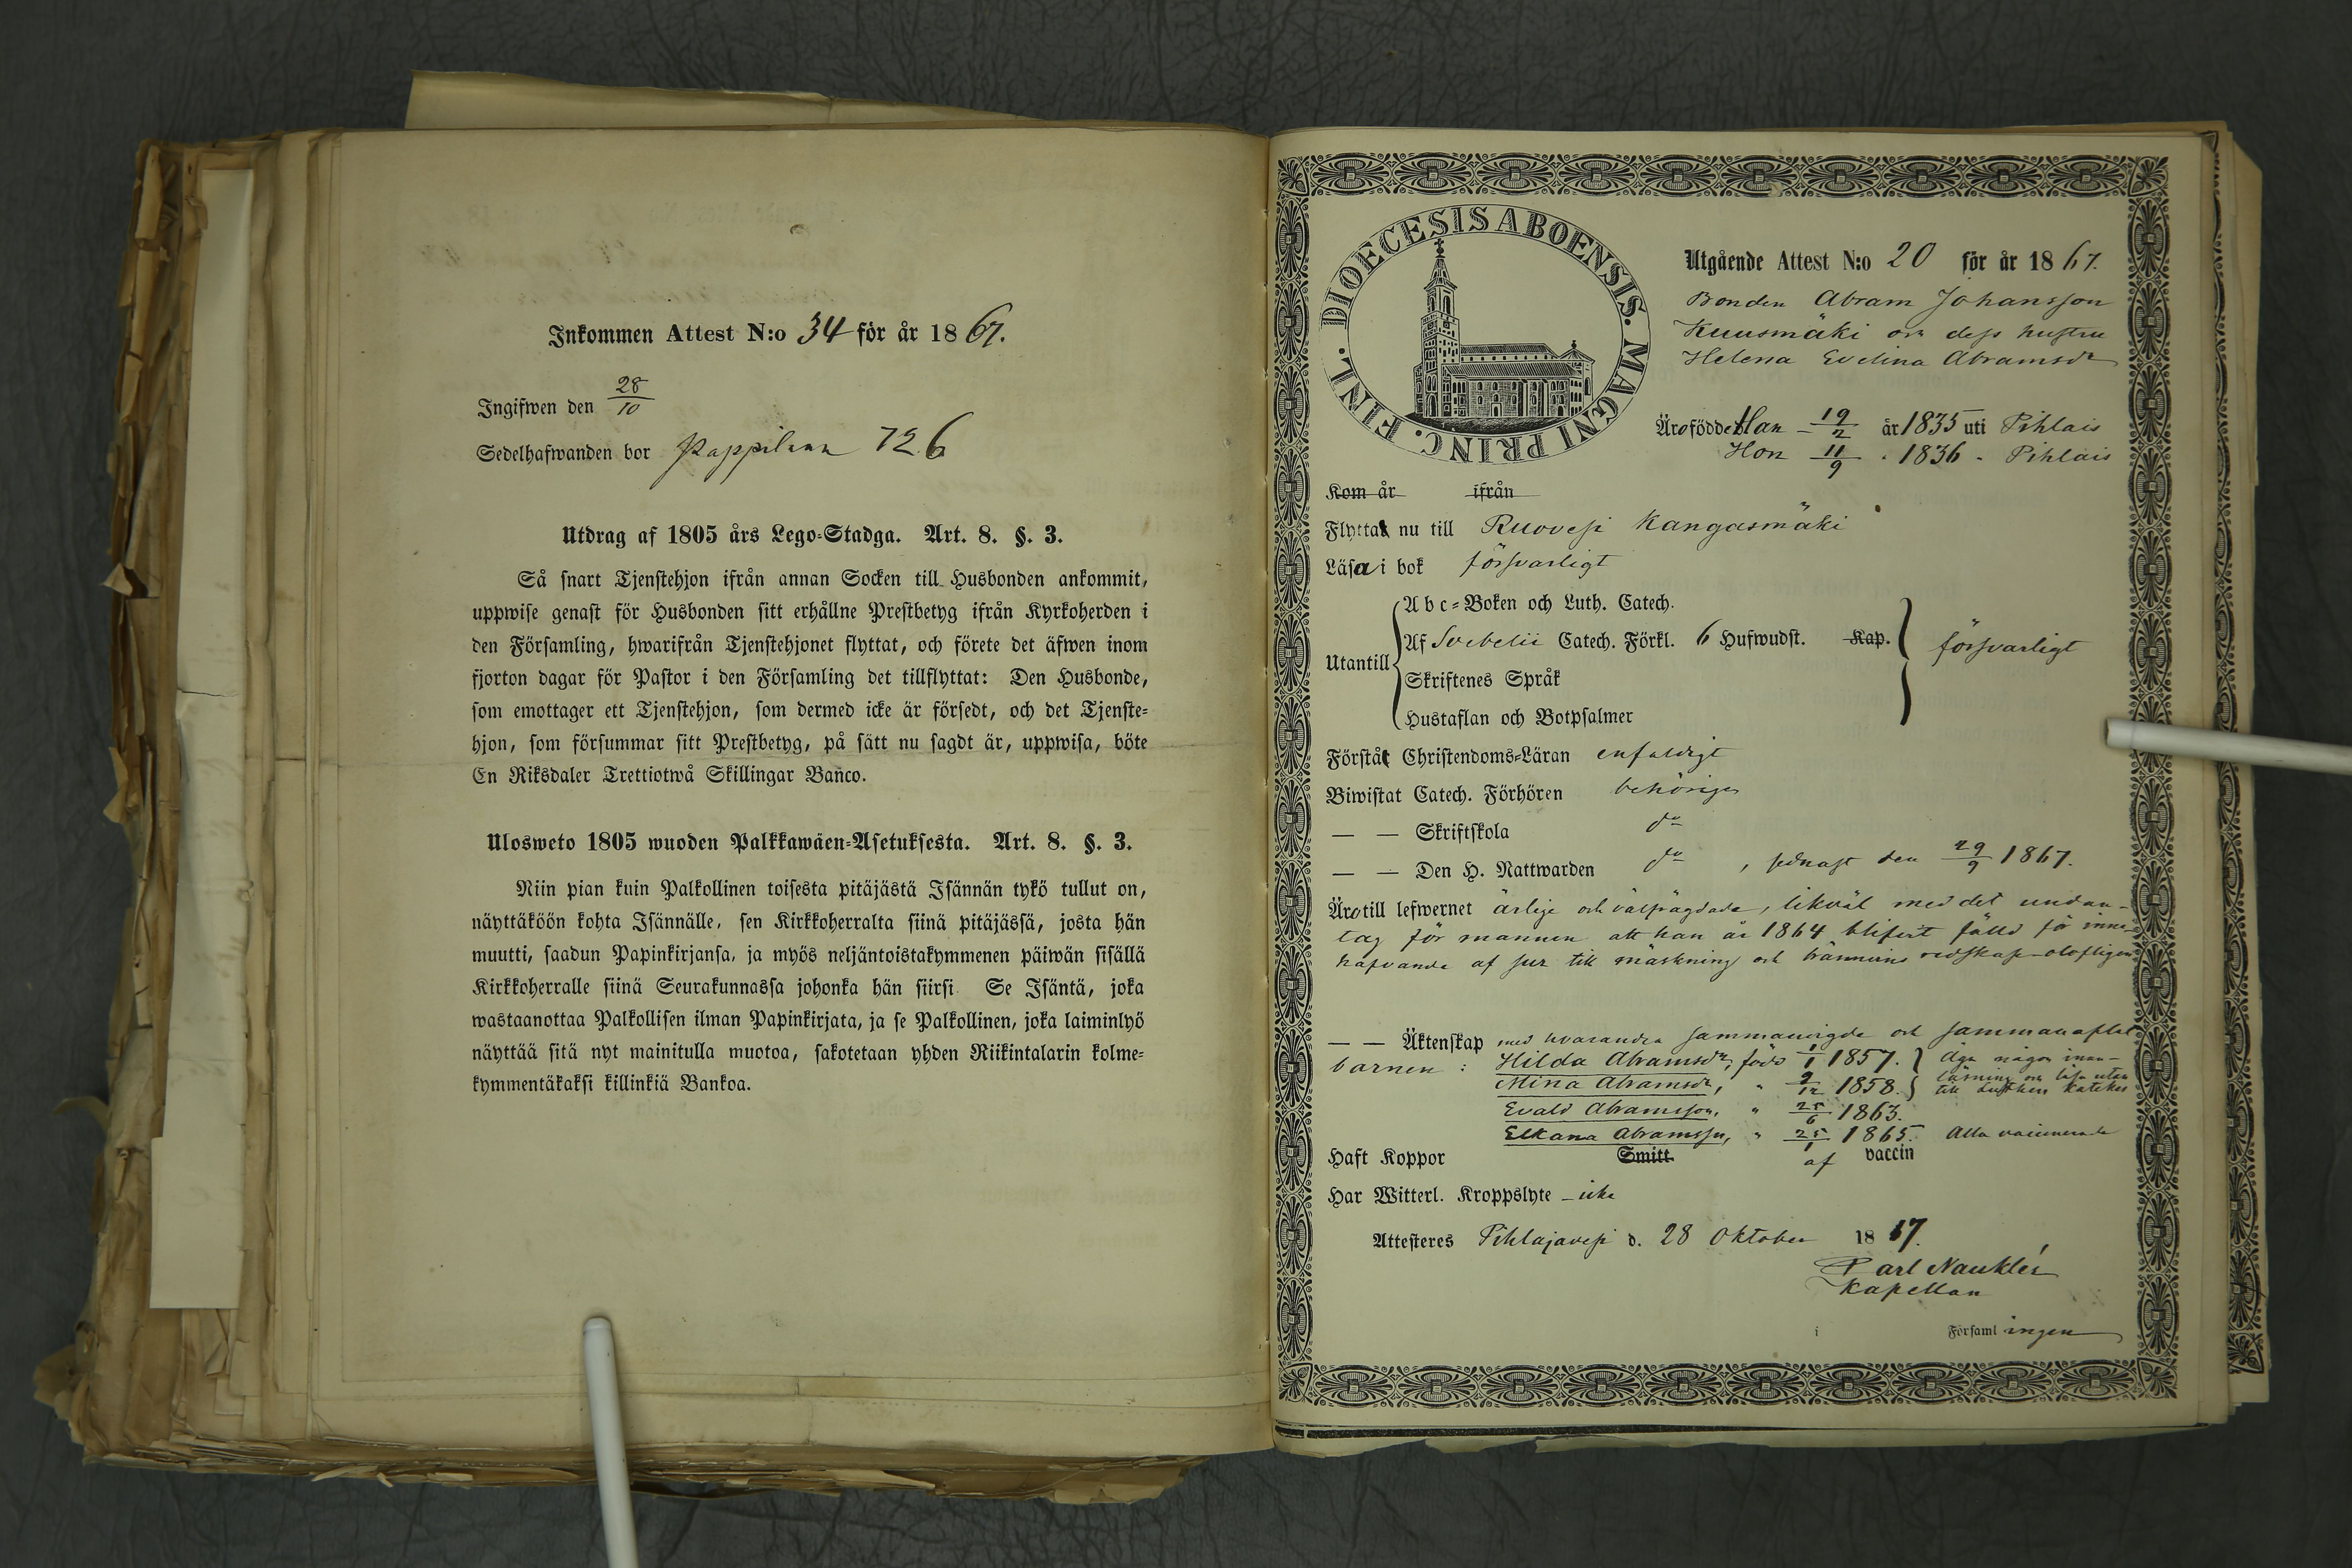 Inkommen Attest N:o 34 för år 1867.
Ingifwen den 28/10
Sedelhafwanden bor 726
Utdrag af 1805 års Lego-Stadga. Art. 8. §. 3.
Så snart Tjenstehjon ifrån annan Socken till Husbonden ankommit,
uppwise genast för Husbonden sitt erhållne Prestbetyg ifrån Kyrkoherden i
den Församling, hwarifrån Tjenstehjonet flyttat, och förete det äfwen inom
fjorton dagar för Pastor i den Församling det tillflyttat: Den Husbonde,
som emottager ett Tjenstehjon, som dermed icke är försedt, och det Tjenste-
hjon, som försummar sitt Prestbetyg, på sätt nu sagdt är, uppwisa, böte
En Riksdaler Trettiotwå Skillingar Banco.
Ulosweto 1805 wuoden Palkkawäen-Asetuksesta. Art. 8. §. 3.
Niin pian kuin Palkollinen toisesta pitäjästä Isännän tykö tullut on,
näyttäköön kohta Isännälle, sen Kirkkoherralta siinä pitäjässä, josta hän
muutti, saadun Papinkirjansa, ja myös neljäntoistakymmenen päiwän sisällä
Kirkkoherralle siinä Seurakunnassa johonka hän siirsi Se Isäntä, joka
wastaanottaa Palkollisen ilman Papinkirjata, ja se Palkollinen, joka laiminlyö
näyttää sitä nyt mainitulla muotoa, sakotetaan yhden Riikintalarin kolme-
kymmentäkaksi killinkiä Bankoa.
DIOECESIS ABOENSIS. MAGNI PRINC. FINL.
Utgående Attest N:o 20 för år 1867.
Bonden Abram Johansson
Kuusmäki och dess hustru
Helena Evelina Abramsdr
Äro födde Han – 19/2 år 1835 uti Pihlais
Hon 11/9 . 1836 - Pihlais
Kom år ifrån
Flytta nu till Ruovesi Kangasmäki
Läsa i bok försvarligt
Abc-Boken och Luth. Catech.
Utantill Af Svebelii Catech. Förkl. 6 Hufwudst. Kap. försvarligt
Skriftenes Språk
Hustaflan och Botpsalmer
Förstå Christendoms-Läran enfaldigt
Biwistat Catech. Förhören behörigen
— — Skriftskola do
— — Den H. Nattwarden do, sednast den 29/9 1867.
Äro till lefwernet ärlige och välfrägdade, likväl med det undan-
tag för mannen att han år 1864 blifvit fälld för inne-
hafvande af sur till mäskning och bränvins redskap olofligen
— — Äktenskap med hvarandra sammanvigde och sammanaflat
barnen: Hilda Abramsdr, född 1/1 1857. Äga någon innan-
Mina Abramsdr, " 9/12 1858. läsning och läsa utan
till Luthers Katekes
Evald Abramsson, " 25/6 1863.
Elkana Abramsson, " 25/1 1865. Alla vaccinerade
Haft Koppor Smitt af vaccin
Har Witterl. Kroppslyte – icke
Attesteres Pihlajavesi d. 28 Oktober 1867.
Carl Nauklér
Kapellan
i Församlingen